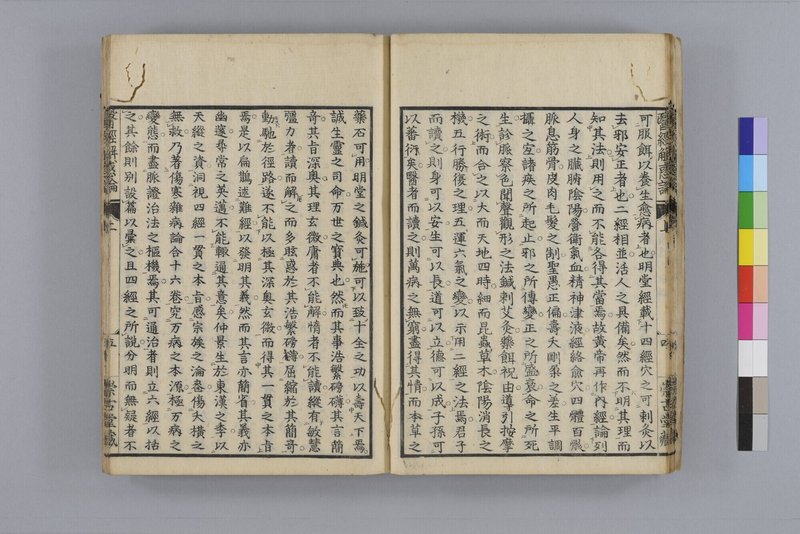 可服餌以養生愈病者也明堂經載十四經穴之可刺灸以
去邪安正者也二經相並活人之具備矣然而不明其理而
知其法則用之而不能各得其當焉故黄帝再作内經論列
人身之臓腑陰陽營衞氣血精神津液經絡兪穴四體百骸
脈息筋骨皮肉毛髮之制聖愚正偏壽夭剛柔之差生平調
攝之宜諸疾之所起止邪之所傳變正之所盛衰命之所死
生診脈察色聞聲觀形之法鍼刺艾灸藥餌祝由導引按摩
之術而合之以大而天地四時細而昆蟲草木陰陽消長之
機五行勝復之理五運六氣之變以示用二經之法焉君子
而讀之則身可以安生可以長道可以立德可以成子孫可
以蕃衍矣醫者而讀之則萬病之無窮盡得其情而本草之
藥石可用明堂之鍼灸可施可以致十全之功以壽天下焉
誠生靈之司命萬世之寶典也然而其事浩繁磅礴其言簡
奇其旨深奧其理玄微庸者不能解惰者不能讀縱有敏慧
彊力者讀而解之而多眩惑於其浩繁磅礴屈縮於其簡奇
動馳於徑路遂不能以極其深奧玄微而得其一貫之本旨
焉是以扁鵲述難經以發明其義然而其言亦簡省其義亦
幽邃尋常之英邁不能輙通其意矣仲景生於東漢之季以
天縱之資洞視四經一貫之本旨感宗族之淪喪傷夭橫之
無救乃著傷寒雜病論合十六卷究万病之本源極万病之
變態而盡脈證治法之樞機焉其可通治者則立六經以括
之其餘則別設篇以彙之且四經之所説分明而無疑者不
醫經解惑論
上
五